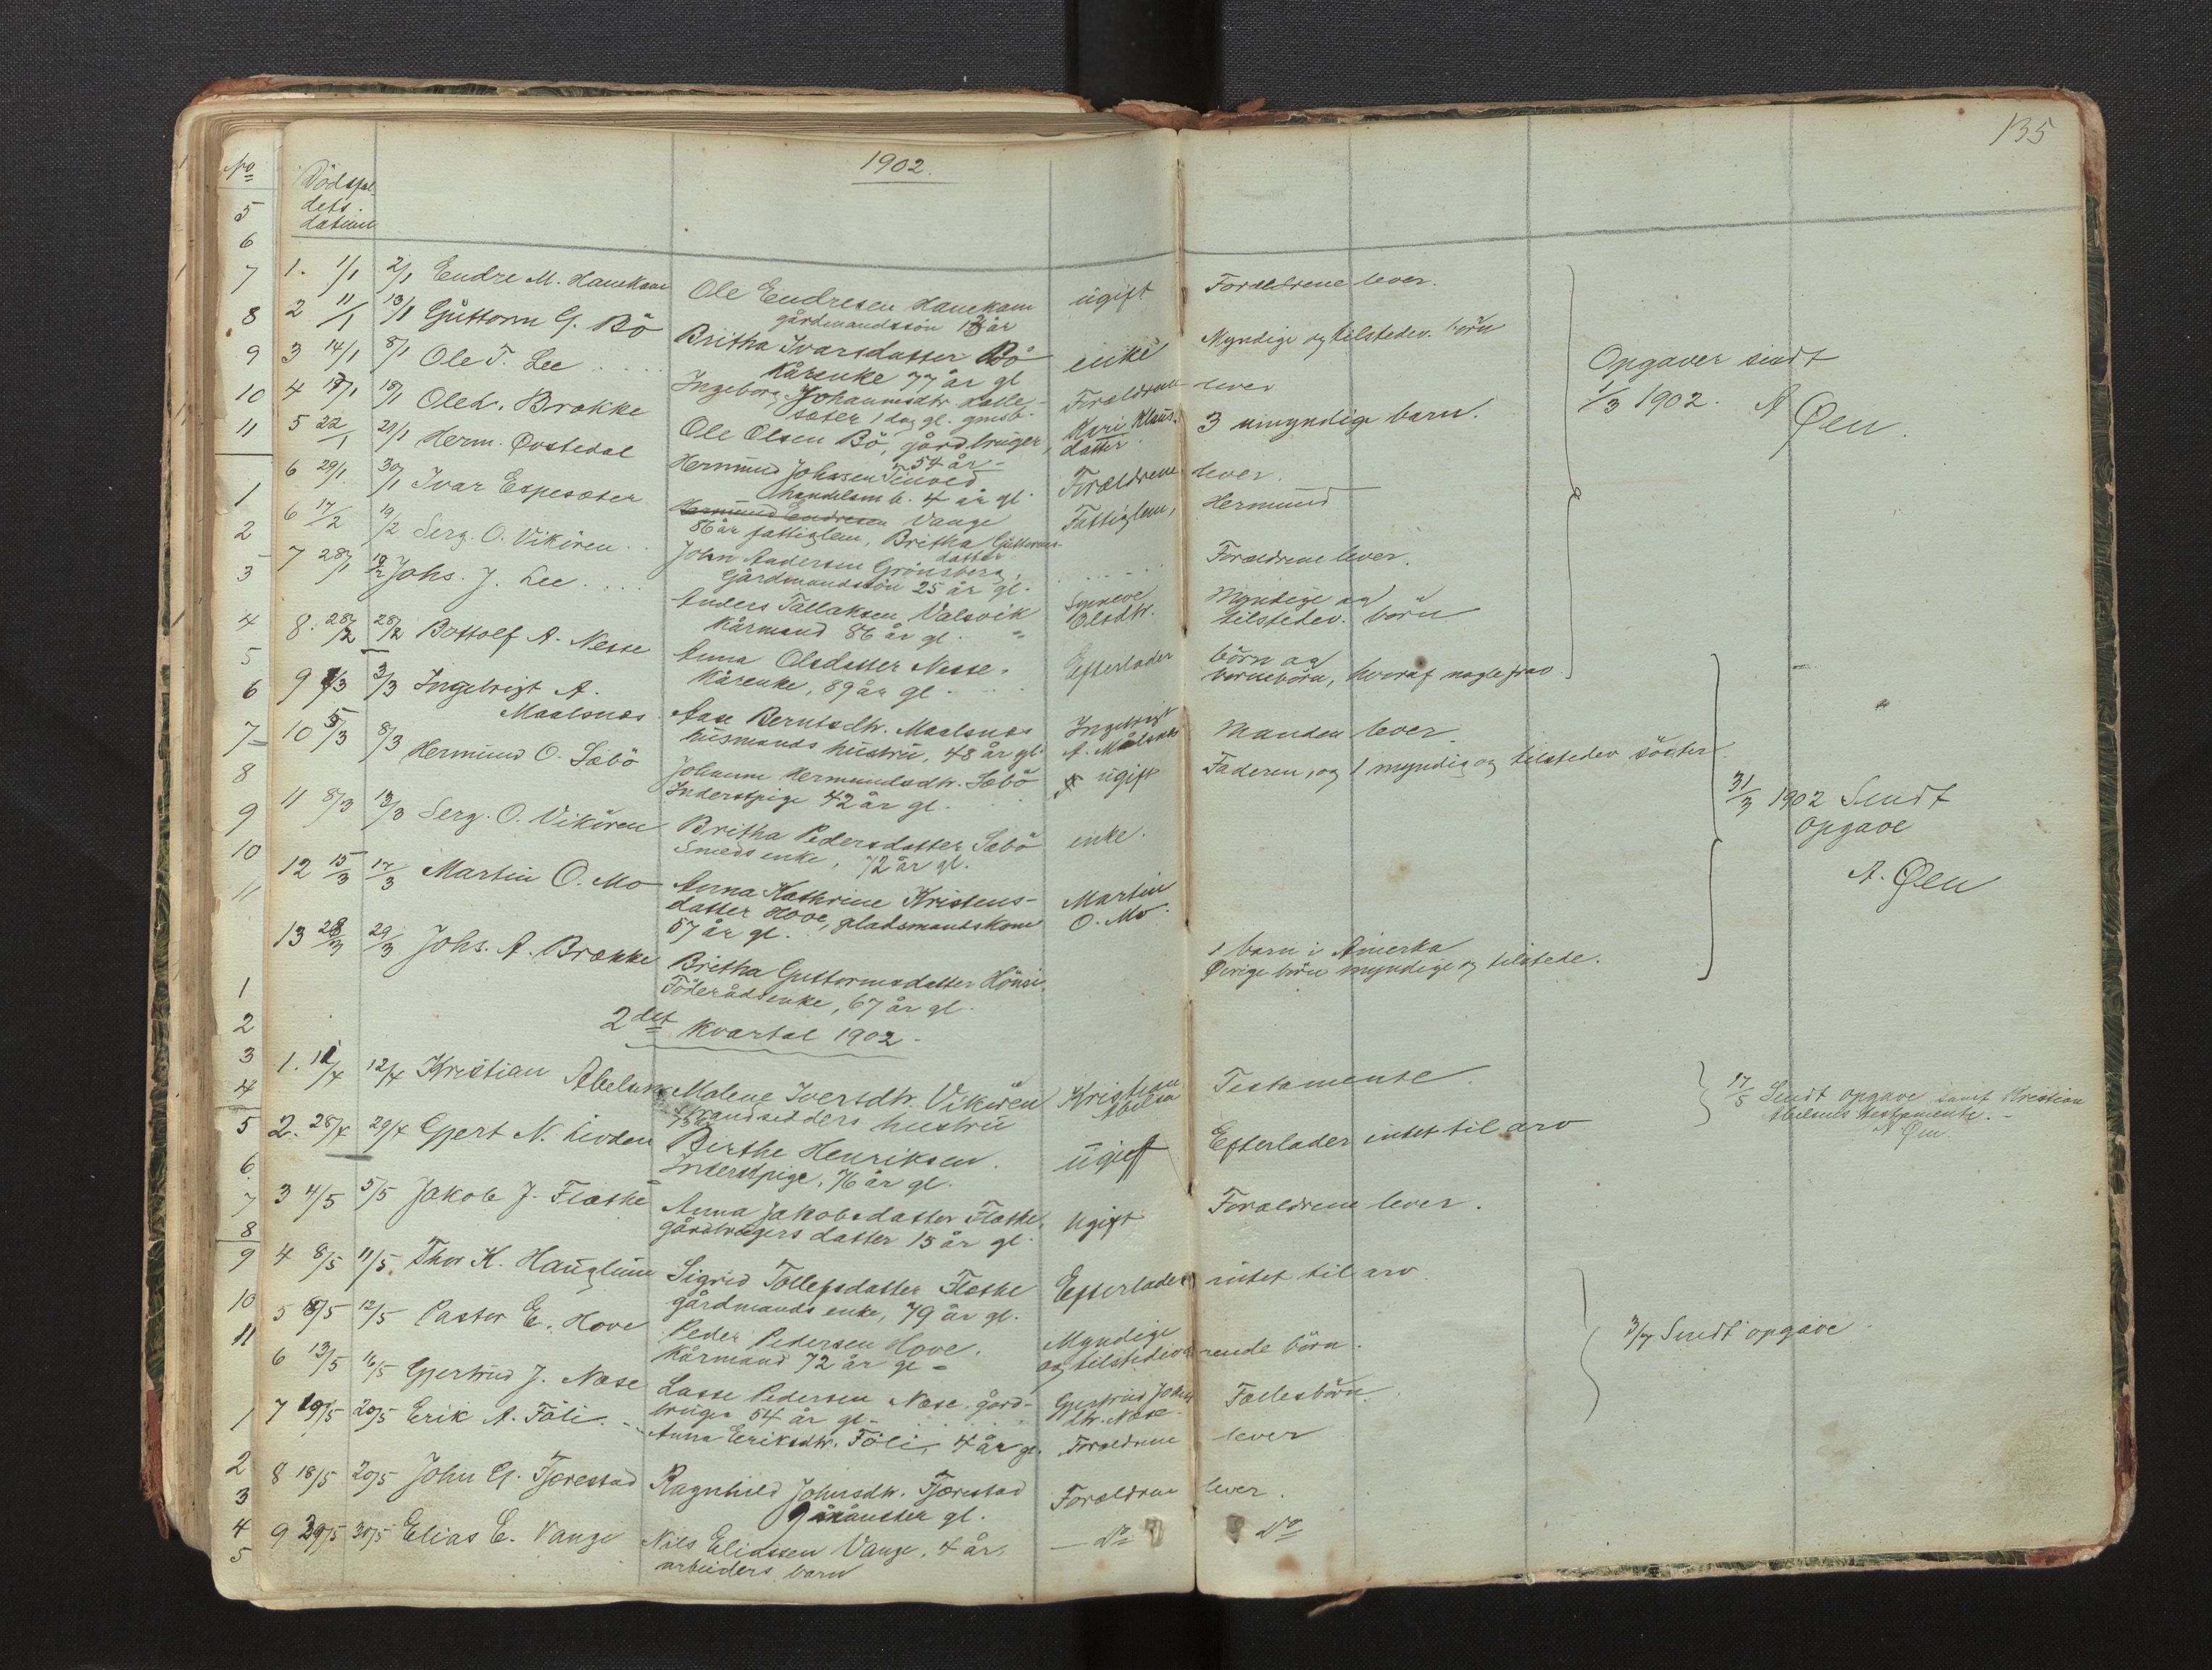 135
1902.
No
Dödsfal
dets.
datum
1. 1/1 2/1 Endre M. Hanekam Ole Endresen Hanekam ugift Forældrene lever.
gårdmandssön år
2 11/1 13/1 Guttorm G. Bö Britha Ivarsdatter Bö enke Myndige og tilstedev. börn
Kårenke 77 år gl
3 14/1 8/1 Ole T. Lee Ingeborg Johannesdtr Lalle- Forældrene lever
sæter 1 dag gl. gmsb.
4 18/1 Ole L. Brække Ole Olsen Bö, gårdbruger, Kari Klaus. 3 umyndige barn.
54 år - datter
5 22/1 29/1 Herm. Ovstedal Hermund Johnsen Tenved Forældrene lever.
handelsm b. 4 år gl.
6 29/1 30/1 Ivar Espesæter Hermund Endresen Vange Fattiglem, Hermund
86 år fattiglem, Britha Guttorms-
datter
6 17/2 19/2 Serg. O. Vikören John Andersen Grönsberg, Forældrene lever.
Gårdmandssön 25 år gl.
7 28/1 Johs. J. Lee Anders Tallaksen Valsvik Synneve Myndige og
Kårmand 86 år gl. Olsdtr. tilstedev. börn
8. 28/2 28/2 Bottolf A. Nesse Anna Olsdatter Nesse. Efterlader börn og
Kårenke, 89 år gl. börnebörn, hvoraf nogle frav
Opgaver sendt
1/3 1902. A Øen.
9 1/3 3/3 Ingebrigt A. Aase Berntsdtr. Maalsnæs Ingebrigt Manden lever.
Maalsnæs husmands hustru, 48 år gl. A. Målsnæs
10 5/3 8/3 Hermund O. Sæbö Johanne Hermundsdtr. Sæbö ugift Faderen, og 1 myndig og tilstedev söster
Inderstpige 42 år gl.
11 8/3 13/3 Serg. O. Vikören Britha Pedersdatter Sæbö enke.
Smeds enke, 72 år gl.
12 15/3 17/3 Martin O. Mo Anna Kathrine Kristens- Martin
datter Hove, pladsmandskone O. Mo.
57 år gl.
13 28/3 29/3 Johs. A. Brække Britha Guttormsdatter Hönsi 1 barn i Amerika
Föderådsenke, 67 år gl. Övrige börn myndige og tilstede.
31/3 1902 Sendt
opgave
A. Øen
2det Kvartal 1902.
1. 11/4 12/4 Kristian Abelsen Malene Iversdtr. Vikören Kristian Testamente.
Strandsidders hustru Abelsen
17/5 Sendt opgave samt Kristian
Abelsens testamente.
A Øen.
2. 28/4 29/4 Gjert N. Livdan Birthe Henriksen. ugift Efterlader intet til arv
Inderstpige, 76 år gl.
3 4/5 5/5 Jakob J. Flæthe Anna Jakobsdatter Flæthe, Ugift Forældrene lever.
gårdbrugers datter 15 år gl.
4 8/5 11/5 Thor K. Hauglum Sigrid Tollefsdatter Flæthe Efterlader intet til arv
gårdmands enke, 79 år gl.
5 8/5 12/5 Pastor E. Hove Peder Pedersen Hove. Myndige
Kårmand 72 år gl. og tilstedeværende börn.
3/7 Sendt opgave.
6 13/5 16/5 Gjertrud J. Næse Lasse Pedersen Næse, gård- Gjertrud Johns Fællesbörn.
bruger 54 år gl. dtr. Næse.
7 19/5 20/5 Erik A. Föli. Anna Eriksdtr. Föli, 4 år gl. Forældrene lever
8 18/5 20/5 John G. Tjærestad Ragnhild Johnsdtr. Tjærestad Forældrene lever.
9 måneder gl.
9 29/5 30/5 Elias E. Vange Nils Eliassen Vange, 4 år, Do Do
arbeiders barn